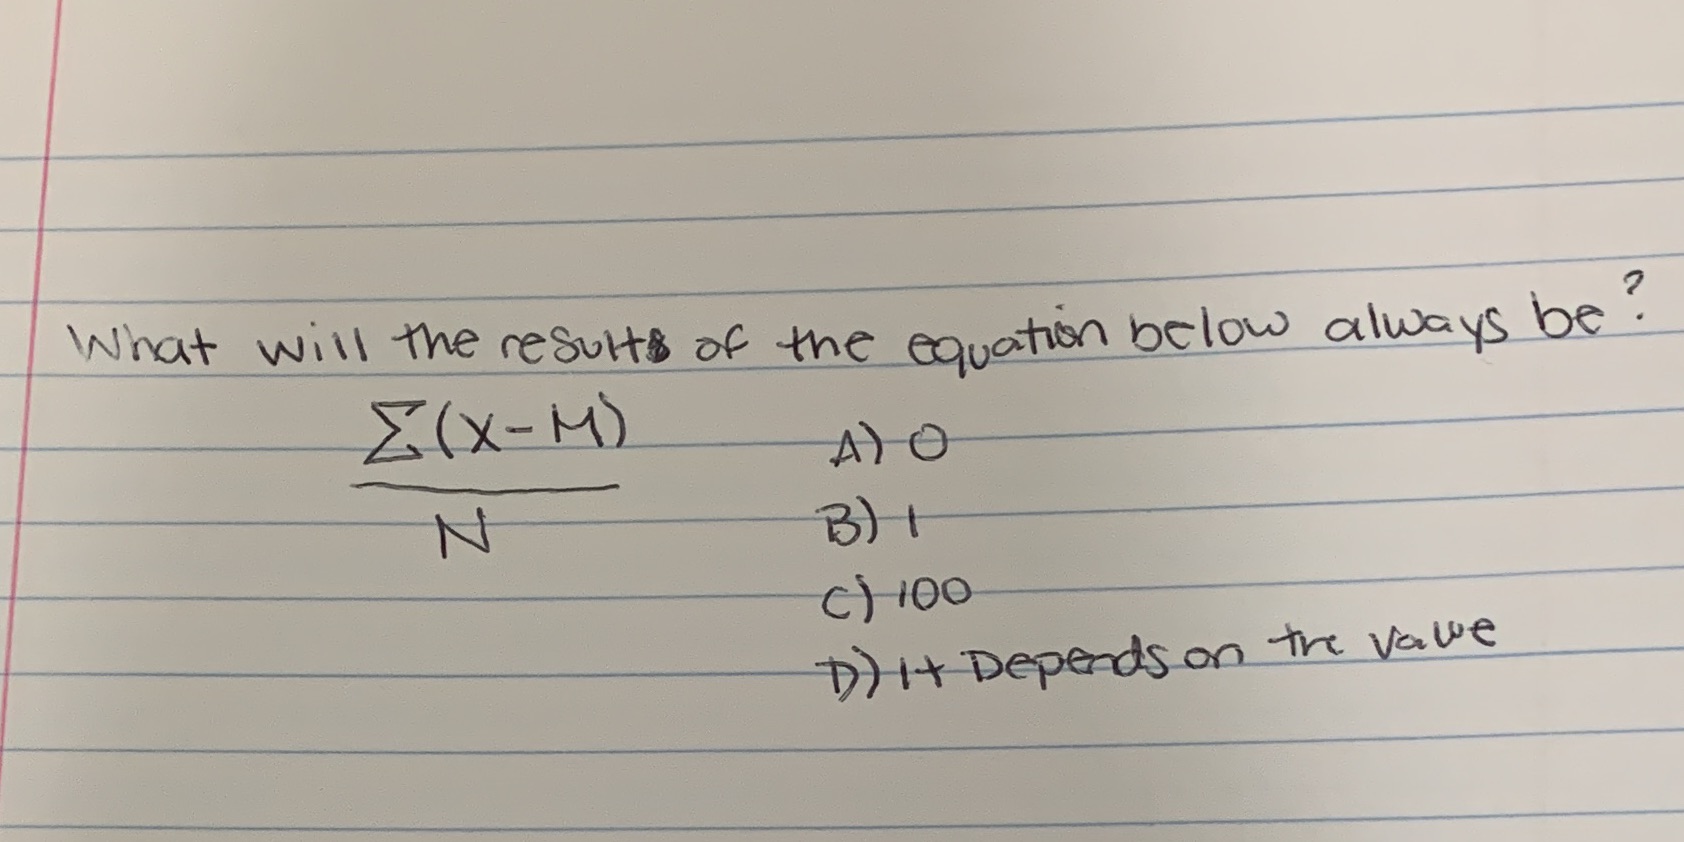 What will the results of the equation below always be?
Σ(X-M)
N
A) 0
B) 1
C) 100
D) It Depends on the value